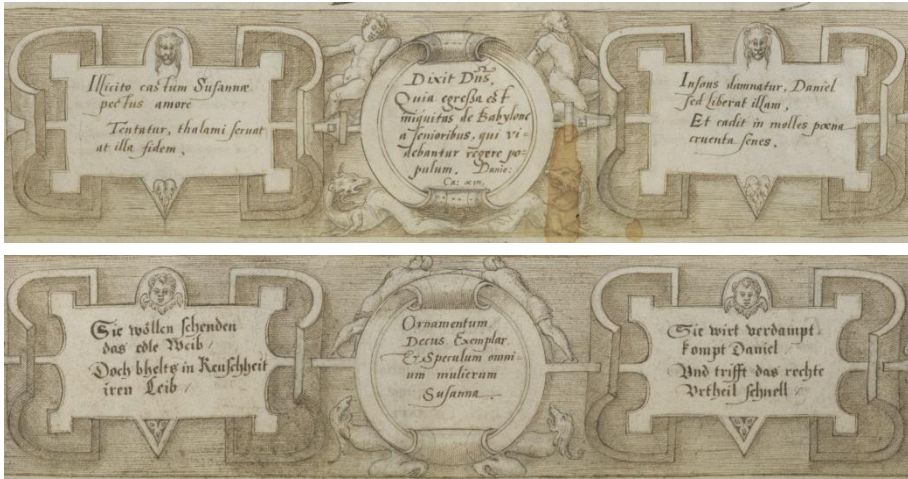 Illicito castum Susannæ
pectus amore
Tentatur, thalami seruat
at illa fidem.
Dixit Dns.
Quia egreßa est
iniquitas de Babylone
a senioribus, qui vi-
debantur regere po-
pulum. Danie:
Ca: xiii.
Insons damnatur, Daniel
sed liberat illam,
Et cadit in molles pœna
cruenta senes.
Sie wöllen schenden
das edle Weib /
Doch bhelts in Keuschheit
iren Leib /
Ornamentum
Decus Exemplar
Et Speculum omni-
um mulierum
Susanna
Sie wirt verdampt
kompt Daniel /
Vnd trifft das rechte
Vrtheil schnell /